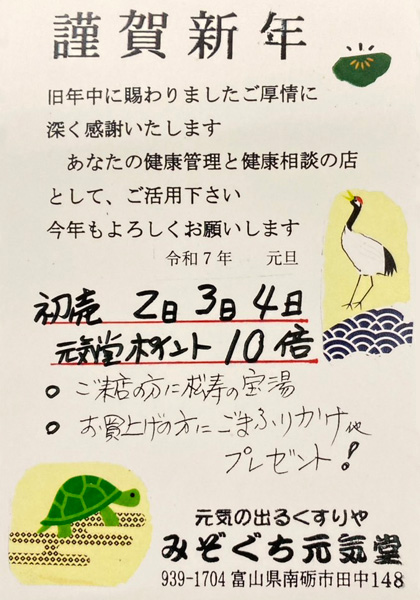 謹賀新年
旧年中に賜わりましたご厚情に
深く感謝いたします
あなたの健康管理と健康相談の店
として、ご活用下さい
今年もよろしくお願いします
令和7年　元旦
初売　2日 3日 4日
元気堂ポイント 10倍
○ ご来店の方に松寿の宝湯
○ お買上げの方にごまふりかけ他
プレゼント！
元気の出るくすりや
みぞぐち元気堂
939-1704 富山県南砺市田中148